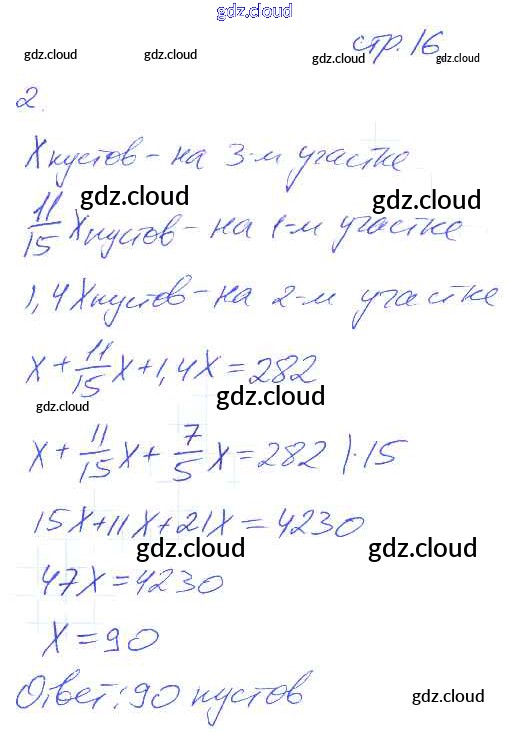 gdz.cloud
стр. 16
gdz.cloud gdz.cloud gdz.cloud gdz.cloud
2.
X кустов - на 3-м участке
gdz.cloud gdz.cloud
11/15 X кустов - на 1-м участке
1,4 X кустов - на 2-м участке
X + 11/15 X + 1,4X = 282
gdz.cloud gdz.cloud
X + 11/15 X + 7/5 X = 282 |·15
15X + 11X + 21X = 4230
gdz.cloud gdz.cloud
47X = 4230
X = 90
Ответ: 90 кустов
gdz.cloud